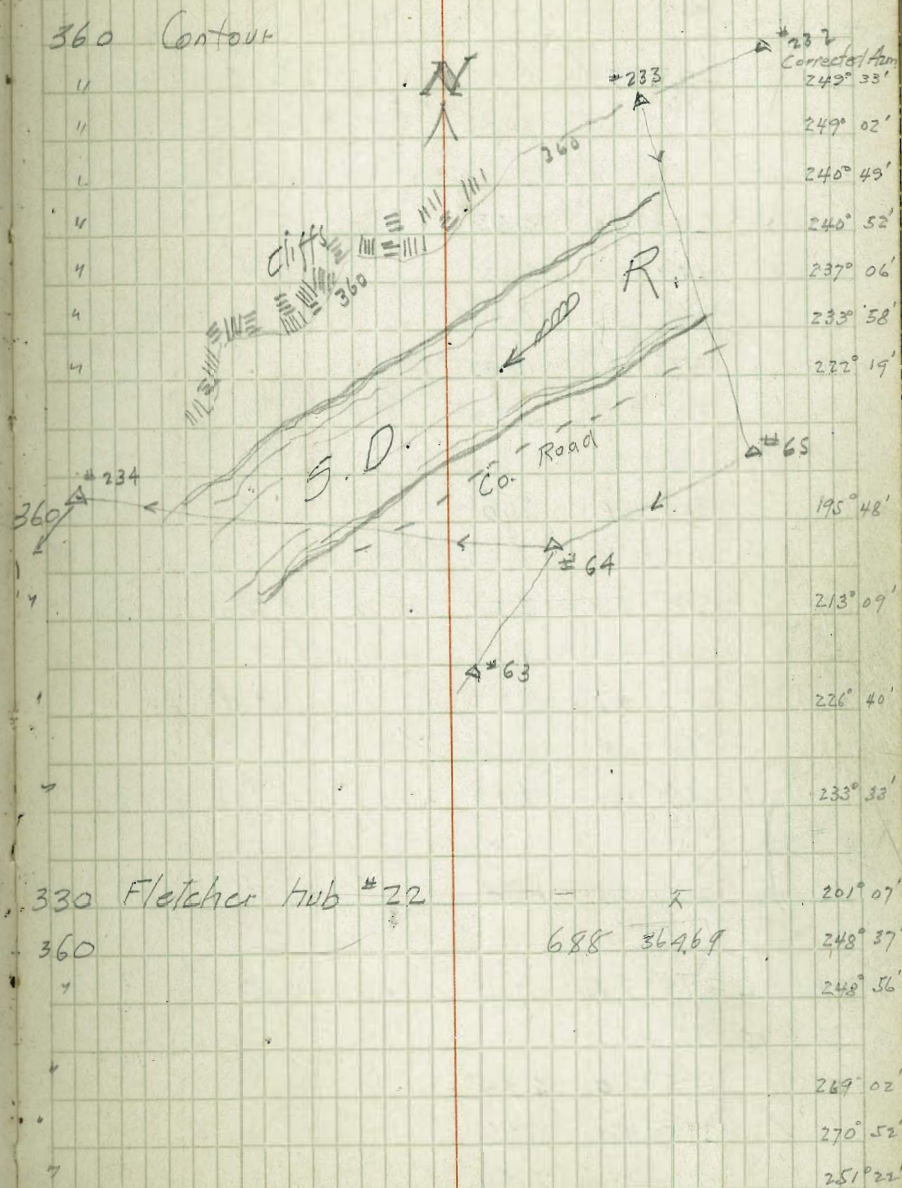 360 Contour
#232
Corrected Azm
N
#233
" 249° 33'
" 249° 02'
360
" 240° 49'
" 240° 52'
Cliffs
R.
" 237° 06'
360
" 233° 58'
" 222° 19'
S.D.
Co. Road
#65
#234
360 195° 48'
#64
" 213° 09'
#63
" 226° 40'
" 233° 33'
330 Fletcher hub #22 — 201° 07'
360 688 364.69 248° 37'
" 248° 56'
" 269° 02'
270° 52'
" 251° 22'